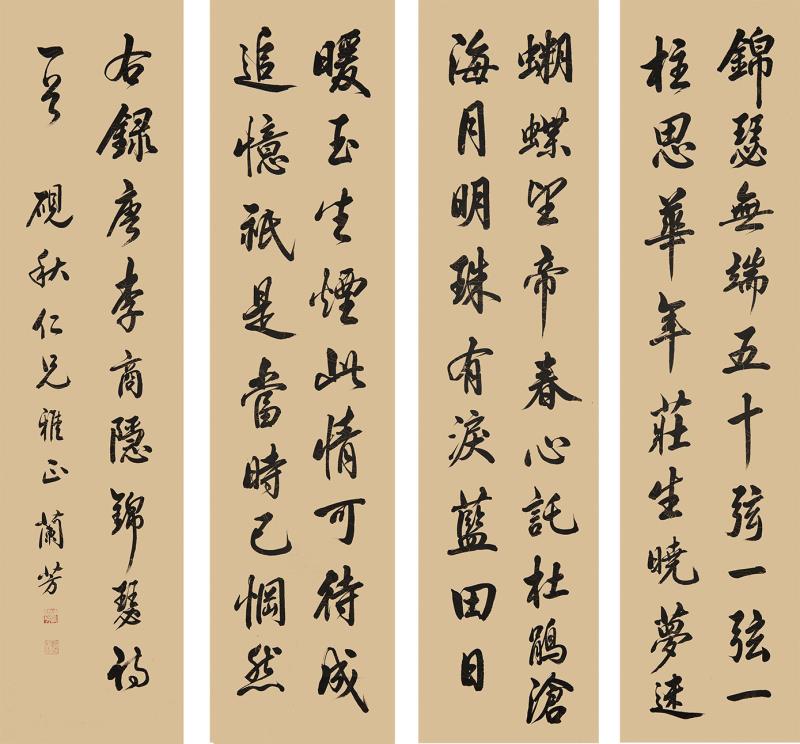 錦瑟無端五十弦一弦一
柱思華年莊生曉夢迷
蝴蝶望帝春心託杜鵑滄
海月明珠有淚藍田日
暖玉生煙此情可待成
追憶祇是當時已惘然
右錄唐李商隱錦瑟詩
一首 硯秋仁兄雅正 蘭芳